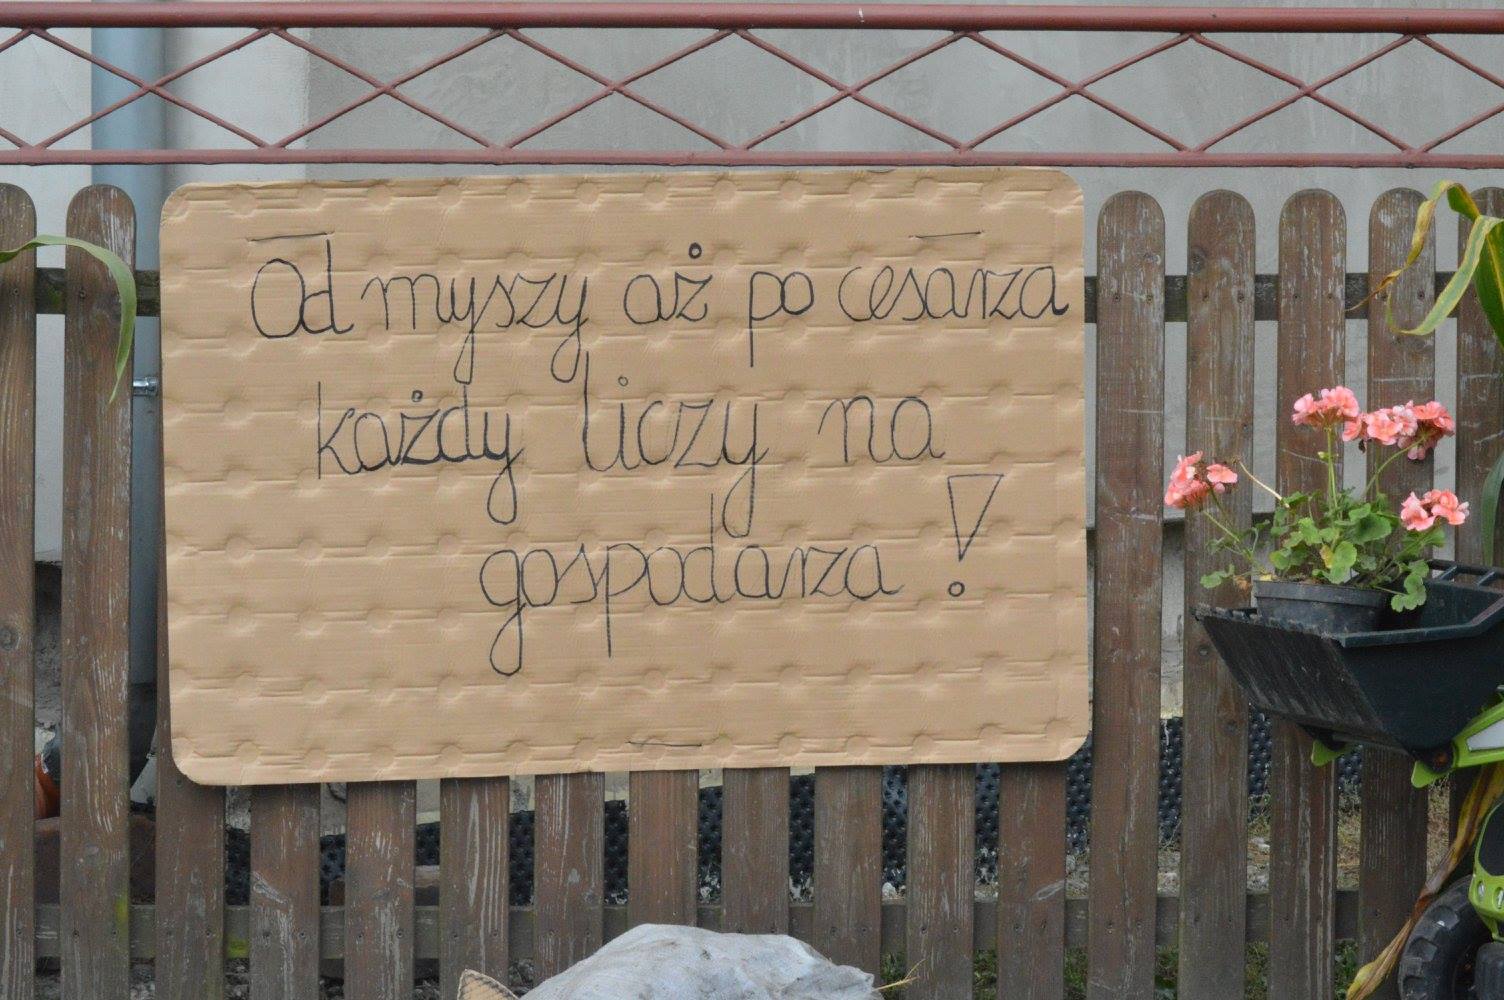 Od myszy aż po cesarza
każdy liczy na
gospodarza!